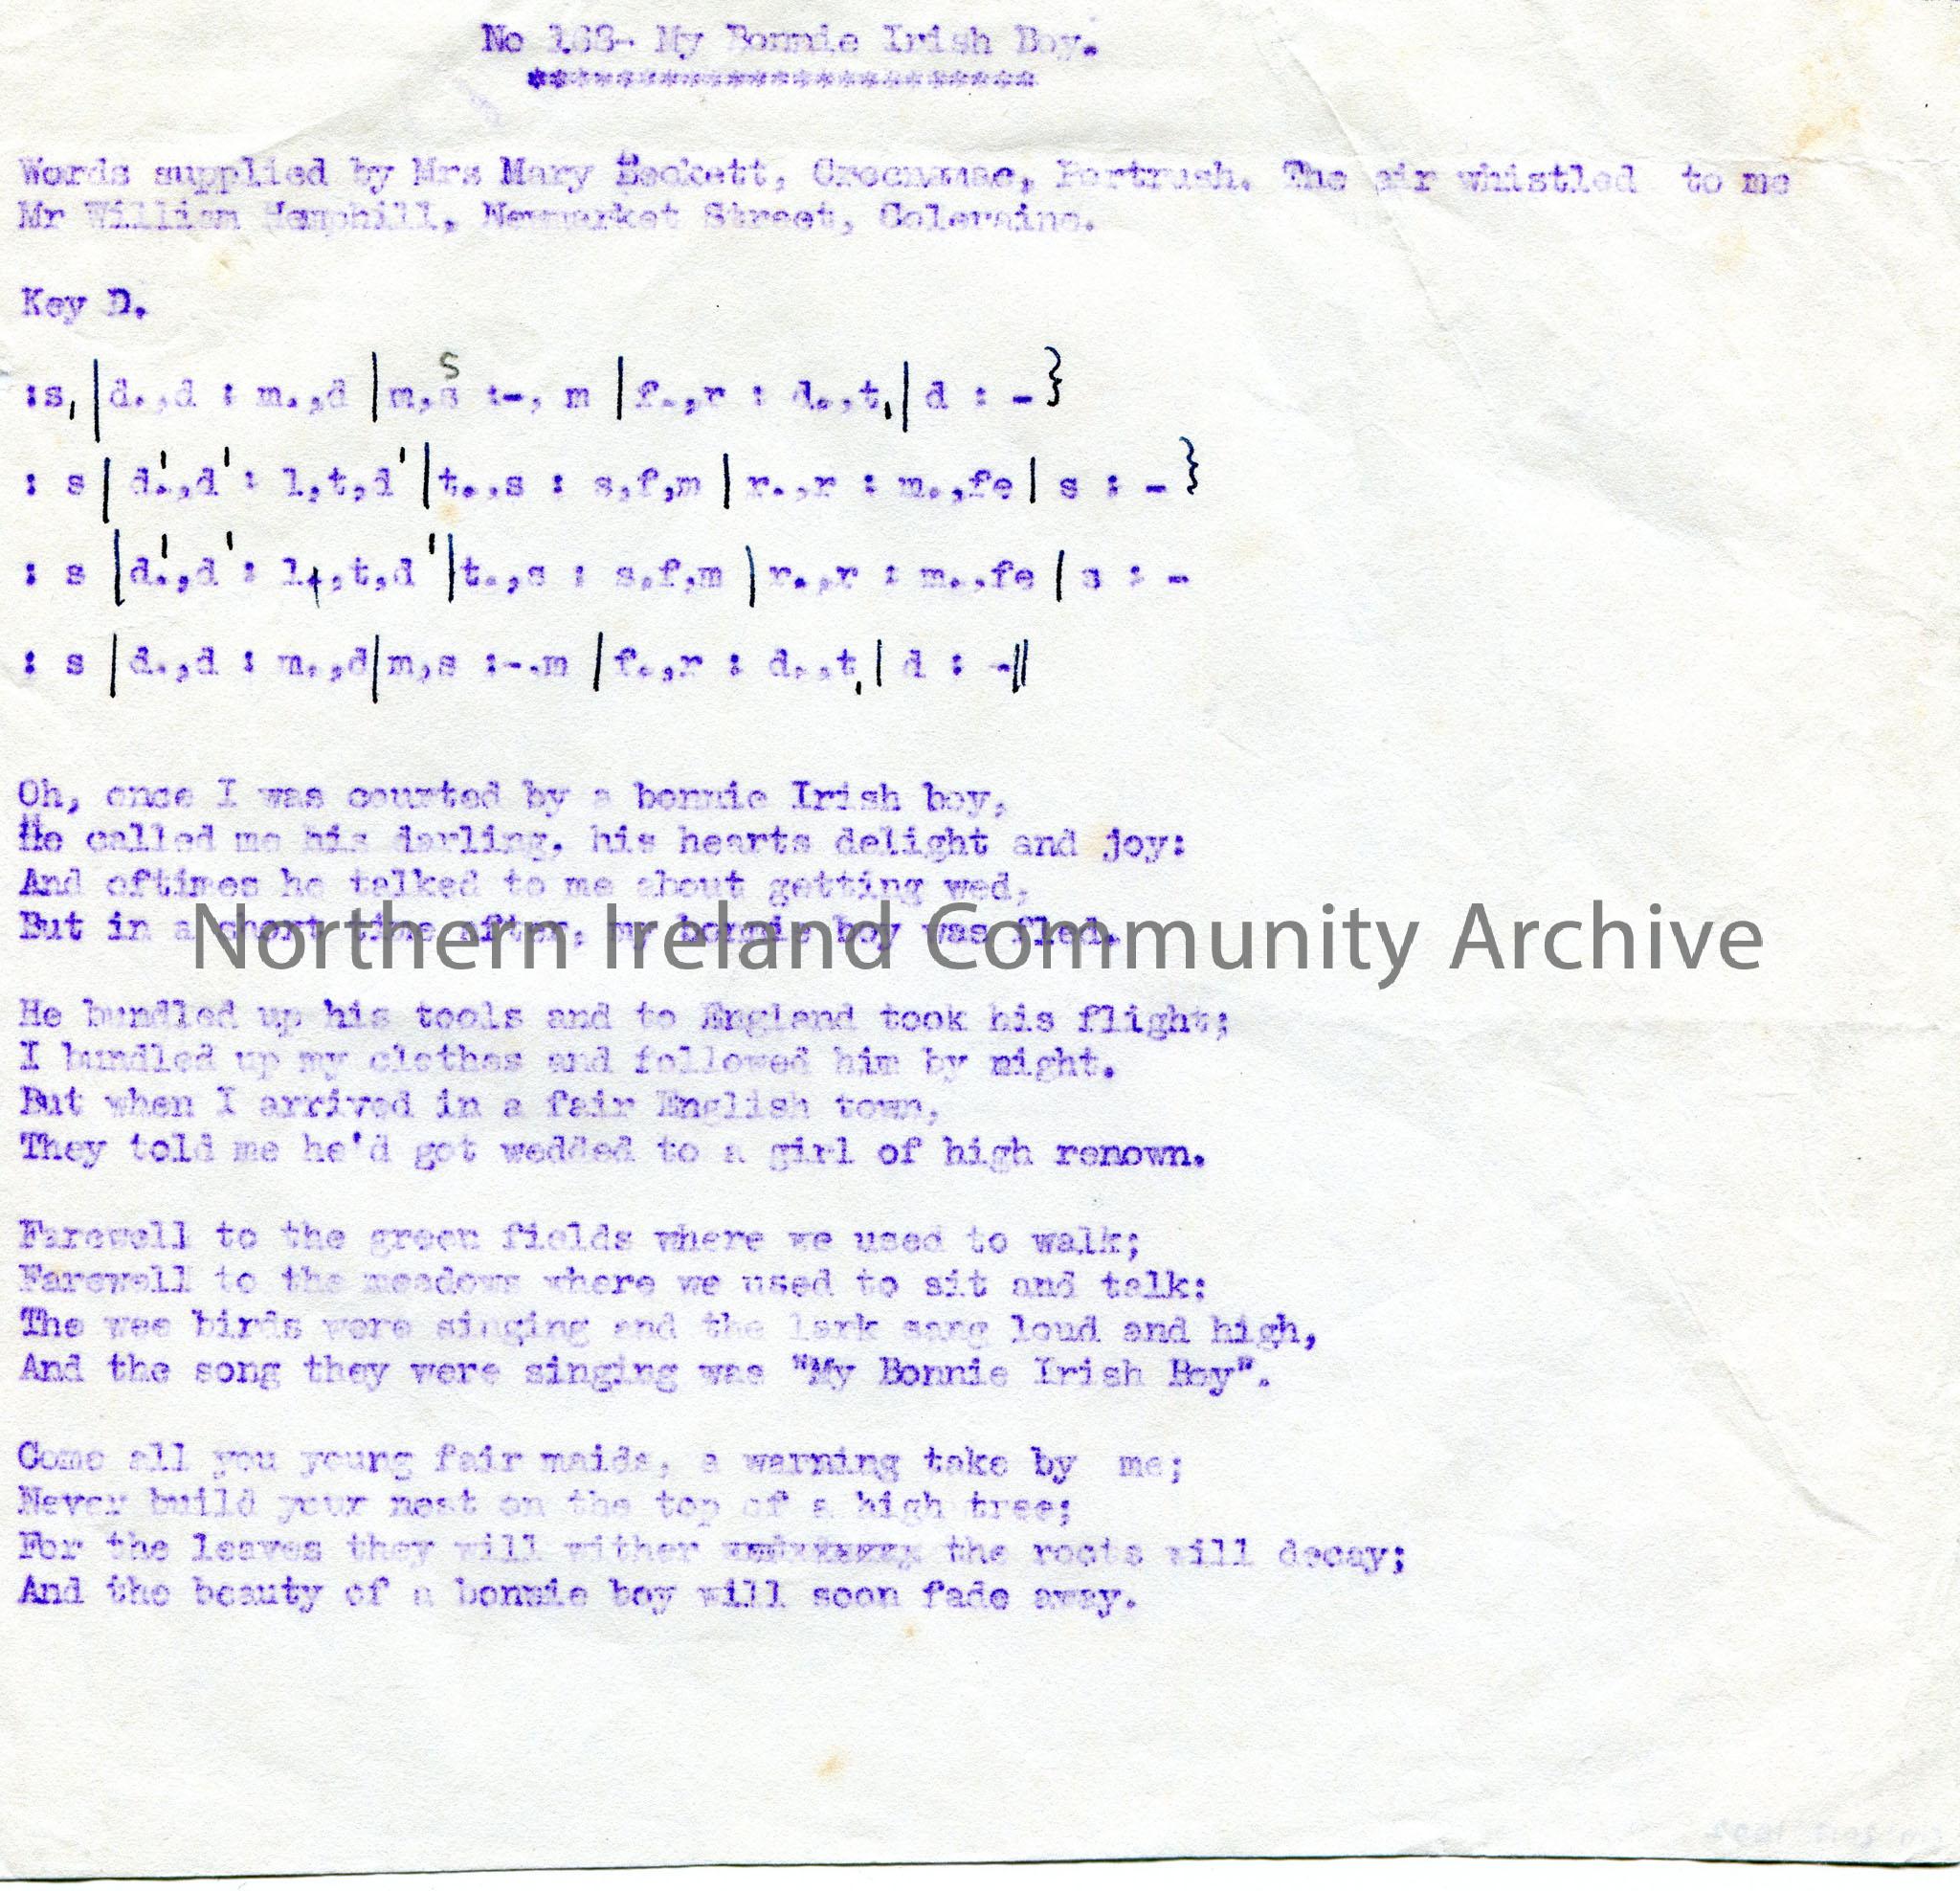 No 168- My Bonnie Irish Boy.
************************
Words supplied by Mrs Mary Beckett, Portrush. The air whistled to me
Mr William Hemphill, Newmarket Street, Coleraine.
Key D.
s
:s, |d.,d : m.,d |m,s :-, m |f.,r : d.,t,| d : -}
: s | d'.,d' : l,t,d' |t.,s : s,f,m | r.,r : m.,fe | s : -}
: s |d'.,d' : l,t,d' |t.,s : s,f,m |r.,r : m.,fe | s : -
: s |d.,d : m.,d|m,s :-.m |f.,r : d.,t,| d : -||
Oh, once I was courted by a bonnie Irish boy,
He called me his darling, his hearts delight and joy:
And oftimes he talked to me about getting wed,
But in a short time after, my bonnie boy was fled.
Northern Ireland Community Archive
He bundled up his tools and to England took his flight;
I bundled up my clothes and followed him by night.
But when I arrived in a fair English town,
They told me he'd got wedded to a girl of high renown.
Farewell to the green fields where we used to walk;
Farewell to the meadows where we used to sit and talk:
The wee birds were singing and the lark sang loud and high,
And the song they were singing was "My Bonnie Irish Boy".
Come all you young fair maids, a warning take by me;
Never build your nest on the top of a high tree;
For the leaves they will wither the roots will decay;
And the beauty of a bonnie boy will soon fade away.